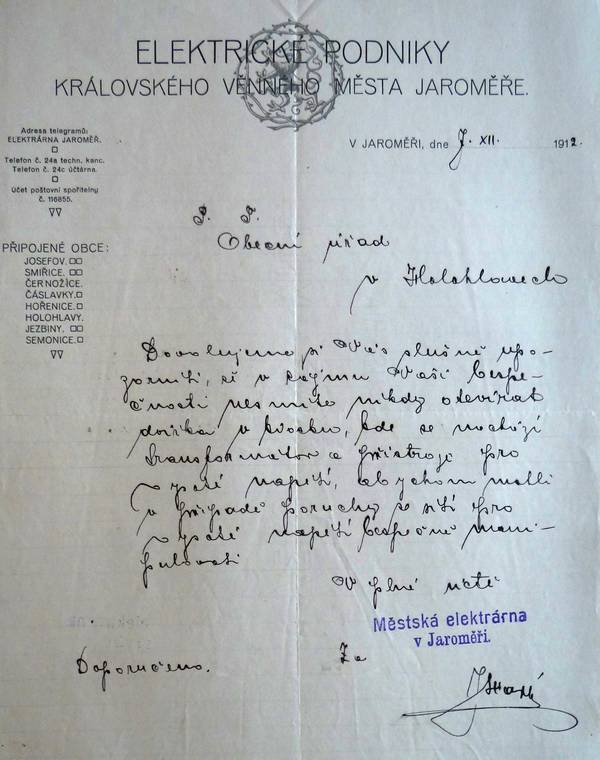 ELEKTRICKÉ PODNIKY
KRÁLOVSKÉHO VĚNNÉHO MĚSTA JAROMĚŘE.
Adresa telegramů:
ELEKTRÁRNA JAROMĚŘ.
Telefon č. 24a techn. kanc.
Telefon č. 24c účtárna.
Účet poštovní spořitelny
č. 116855.
V JAROMĚŘI, dne 7. XII. 1912.
PŘIPOJENÉ OBCE:
JOSEFOV.
SMIŘICE.
ČERNOŽICE.
ČÁSLAVKY.
HOŘENICE.
HOLOHLAVY.
JEZBINY.
SEMONICE.
P. T.
Obecní úřad
v Holohlavech
Dovolujeme si Vás slušně upo-
zorniti, že v zájmu Vaší bezpe-
čnosti nesmíte nikdy otevírat
dvířka v kiosku, kde se nachází
transformátor a přístroje pro
vysoké napětí, abychom mohli
v případě poruchy se sítí pro
vysoké napětí bezpečně mani-
pulovati
V plné úctě
Městská elektrárna
v Jaroměři.
Za
Doporučeno.